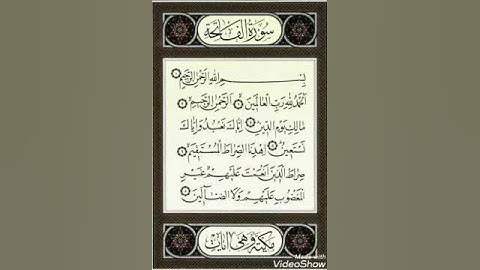 سورة الفاتحة
بسم الله الرحمن الرحيم
الحمد لله رب العالمين الرحمن الرحيم
مالك يوم الدين إياك نعبد وإياك
نستعين اهدنا الصراط المستقيم
صراط الذين أنعمت عليهم غير
المغضوب عليهم ولا الضالين
مكية وهي آيات
Made with
VideoShow